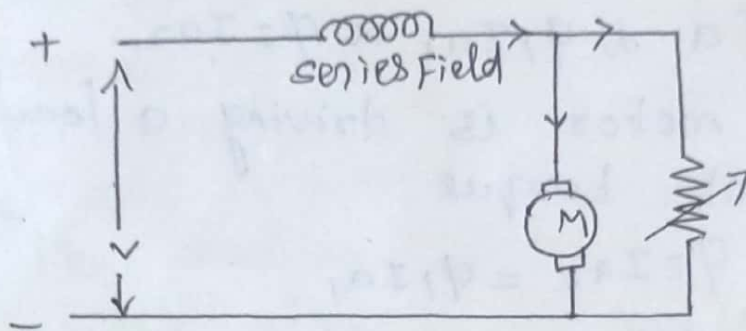 +
series Field
M
V
-